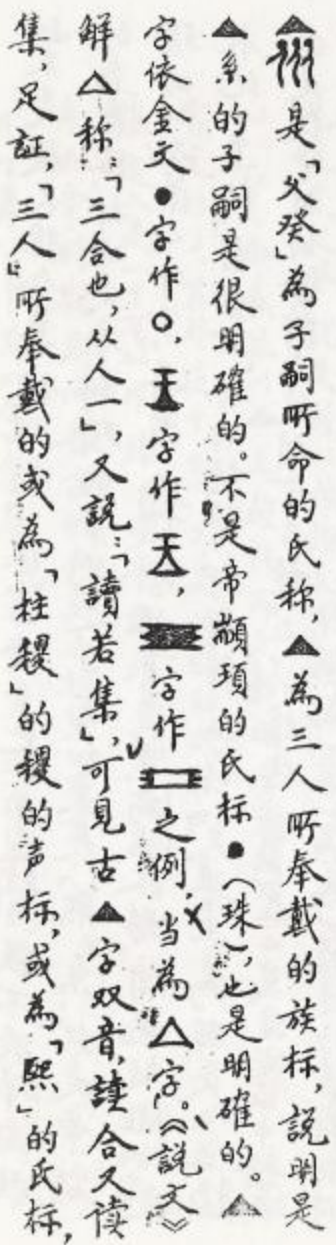 ▲《《是「父癸」為子嗣所命的氏称，▲為三人所奉戴的族标，説明是
▲系的子嗣是很明確的。不是帝顓頊的氏标●（珠），也是明確的。▲
字依金文●字作○，字作，字作之例，当為△字。《説文》
解△称：「三合也，从人一」，又説：「讀若集」，可見古▲字双音，讀合又读
集，足証，「三人」所奉戴的或為「柱稷」的稷的声标，或為「熙」的氏标，